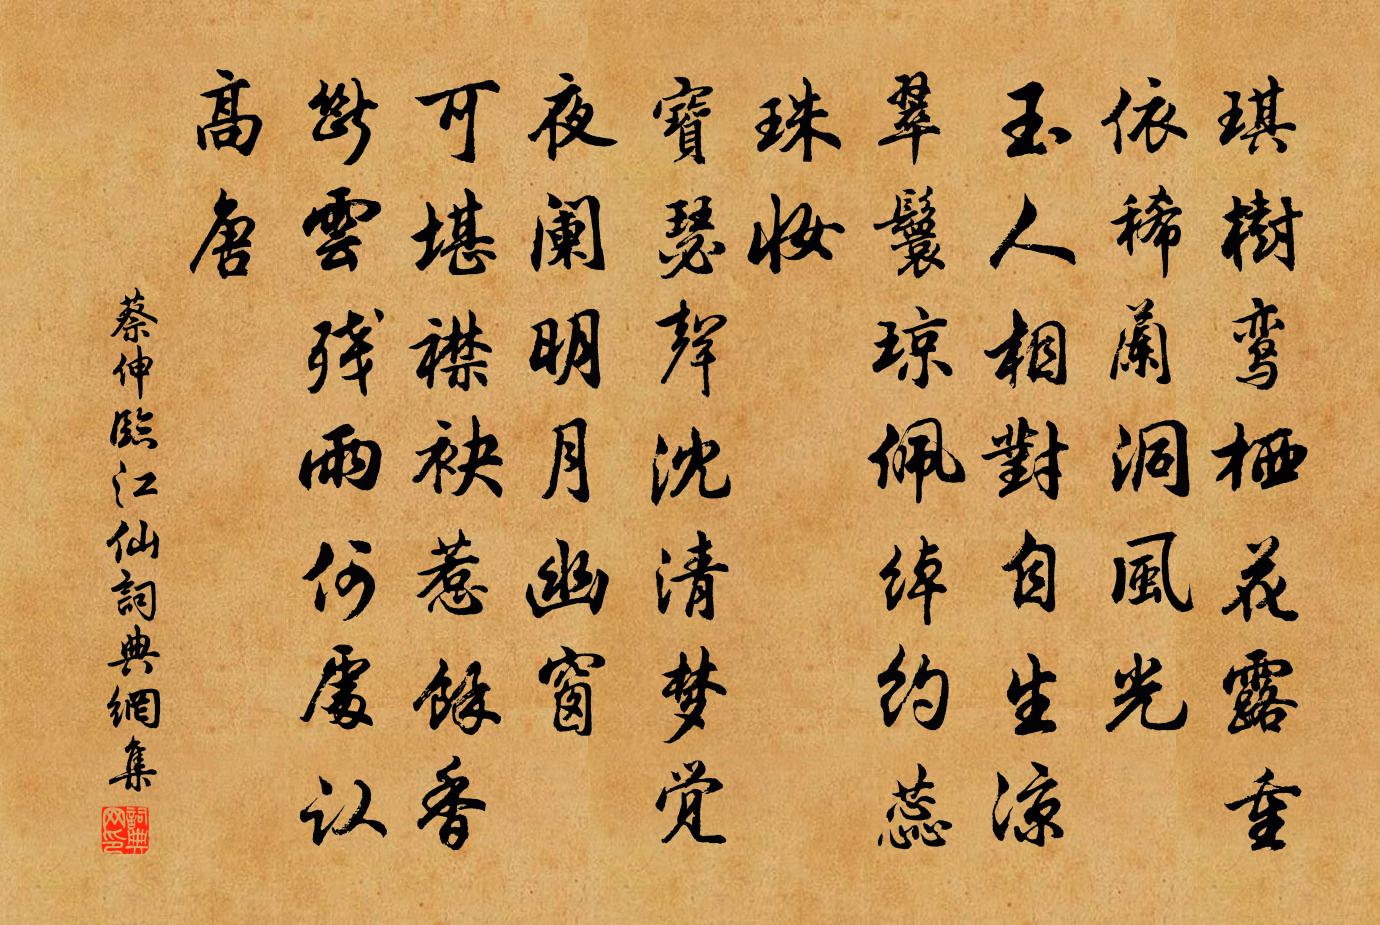 琪樹鸾栖花露重
依稀蘭洞風光
玉人相對自生涼
翠鬟琼佩绰约蕊
珠妆
寶瑟聲沈清梦觉
夜阑明月幽窗
可堪襟袂惹餘香
斷雲残雨何處认
高唐
蔡伸臨江仙詞典網集
詞典网印